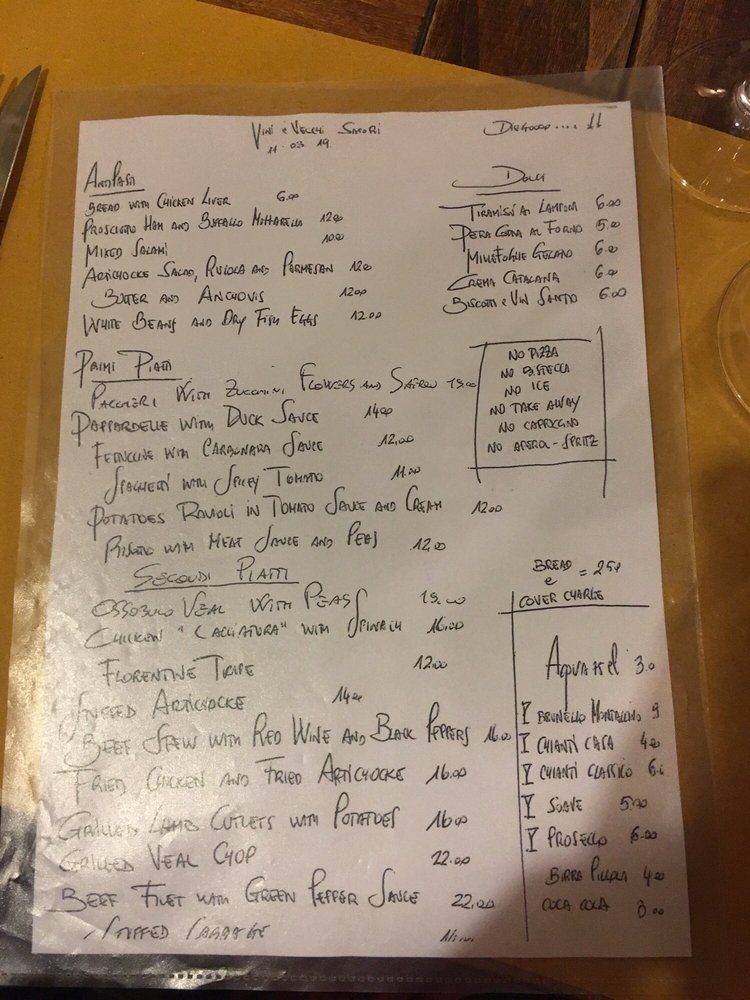 VINI e VECCHI SAPORI
11.03.19.
11
ANTIPASTI
BREAD WITH CHICKEN LIVER 6.00
PROSCIUTTO HAM AND BUFFALO MOZZARELLA 12.00
MIXED SALAMI 10.00
ARTICHOCKE SALAD, RUCOLA AND PARMESAN 12.00
BUTTER AND ANCHOVIS 12.00
WHITE BEANS AND DRY FISH EGGS 12.00
DOLCI
TIRAMISÙ AI LAMPONI 6.00
PERA COTTA AL FORNO 5.00
MILLEFOGLIE GELATO 6.00
CREMA CATALANA 6.00
BISCOTTI e VIN SANTO 6.00
NO PIZZA
NO BISTECCA
NO ICE
NO TAKE AWAY
NO CAPPUCCINO
NO APEROL-SPRITZ
PRIMI PIATTI
PACCHERI WITH ZUCCHINI FLOWERS AND 15.00
PAPPARDELLE WITH DUCK SAUCE 14.00
FETTUCCINE WITH CARBONARA SAUCE 12.00
SPAGHETTI WITH SPICY TOMATO 11.00
POTATOES RAVIOLI IN TOMATO SAUCE AND CREAM 12.00
RISOTTO WITH MEAT SAUCE AND PEAS 12.00
SECONDI PIATTI
OSSOBUCO VEAL WITH PEAS
CHICKEN "CACCIATORA" WITH SPINACH 16.00
FLORENTINE TRIPE 12.00
STUFFED ARTICHOCKE 14.00
BEEF STEW WITH RED WINE AND BLACK PEPPERS 16.00
FRIED CHICKEN AND FRIED ARTICHOCKE 16.00
GRILLED LAMB CUTLETS WITH POTATOES 16.00
GRILLED VEAL CHOP 22.00
BEEF FILET WITH GREEN PEPPER SAUCE 22.00
STUFFED CABBAGE
BREAD
e = 2.50
COVER CHARGE
3.0
BRUNELLO MONTALCINO 9
CHIANTI CASA 4.00
CHIANTI CLASSICO 6.
SOAVE 5.00
PROSECCO 6.00
BIRRA PICCOLA 4.00
COCA COLA 3.00